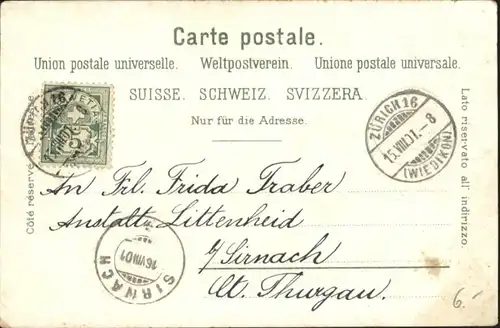 Carte postale.
Union postale universelle. Weltpostverein. Unione postale universale.
SUISSE. SCHWEIZ. SVIZZERA.
Nur für die Adresse.
Côté réservé à l'adresse.
Lato riservato all' indirizzo.
HELVETIA
5
ZÜRICH 16
15.VIII.01.-8
(WIEDIKON)
An Frl. Frida Traber
Anstalt Littenheid
b/Sirnach
Ct. Thurgau.
SIRNACH
16 VIII 01
6.-